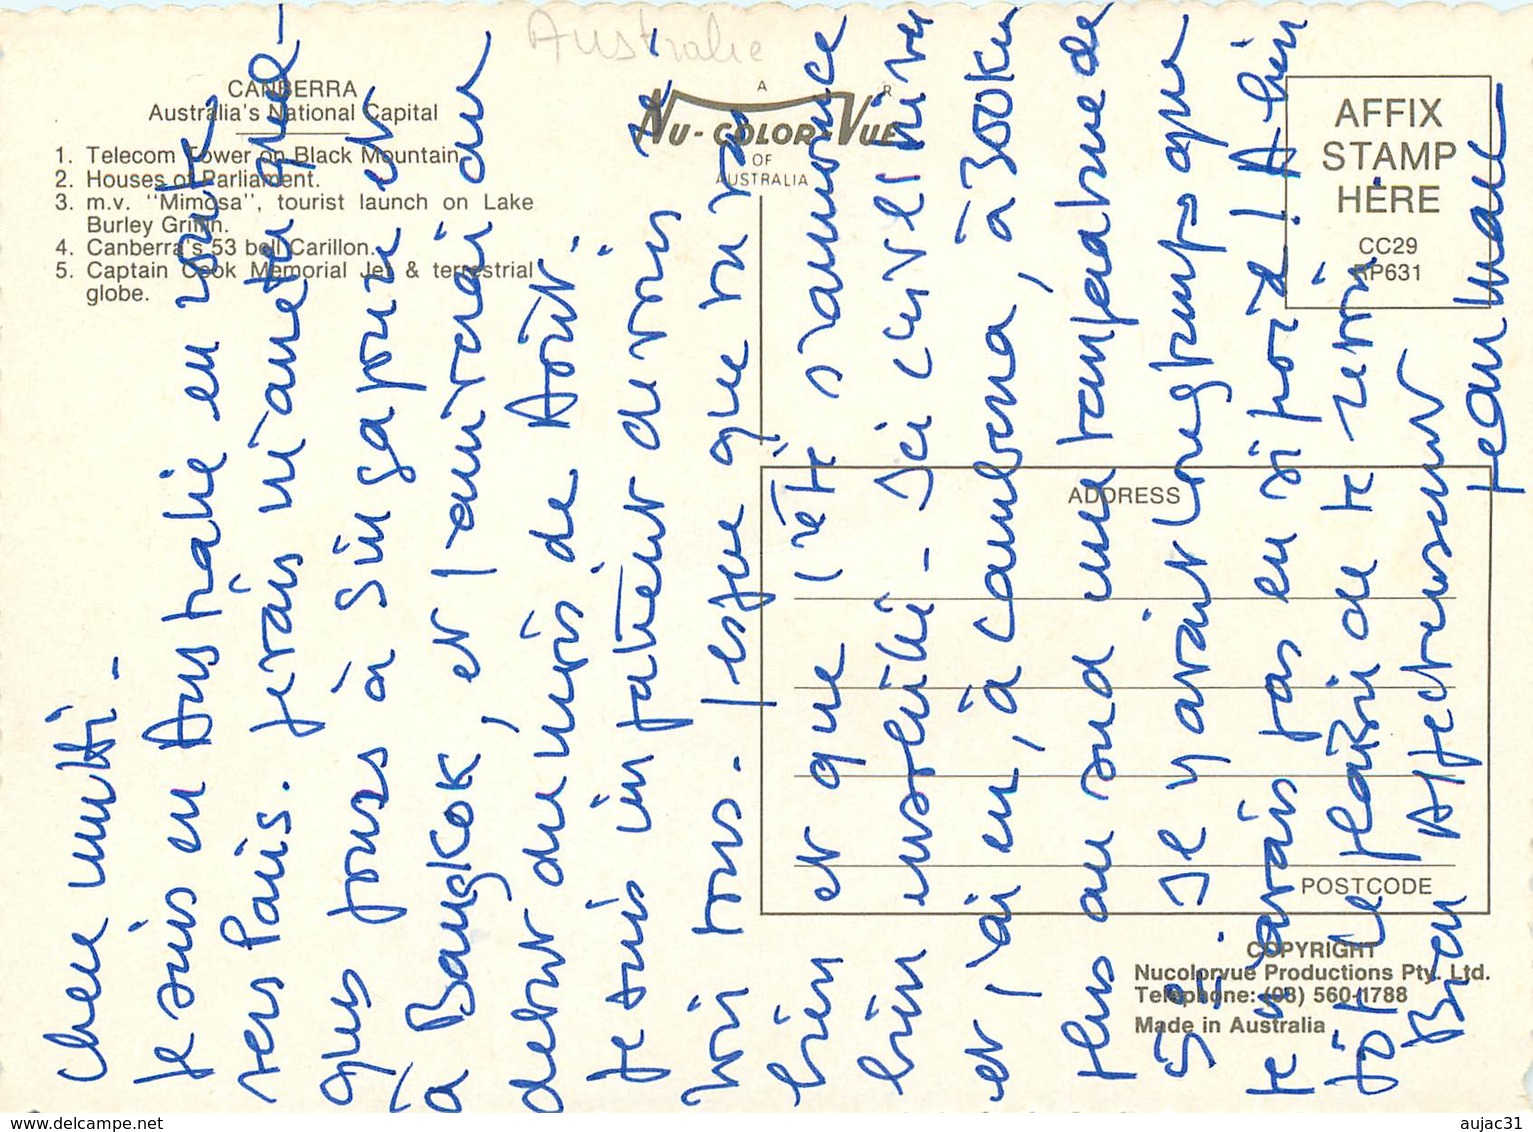 Australie
CANBERRA
Australia's National Capital
1. Telecom Tower on Black Mountain.
2. Houses of Parliament.
3. m.v. "Mimosa", tourist launch on Lake
Burley Griffin.
4. Canberra's 53 bell Carillon.
5. Captain Cook Memorial Jet & terrestrial
globe.
A R
NU-COLOR-VUE
OF
AUSTRALIA
AFFIX
STAMP
HERE
CC29
RP631
ADDRESS
POSTCODE
COPYRIGHT
Nucolorvue Productions Pty. Ltd.
Telephone: (03) 560-1788
Made in Australia
Chere mutti -
Je suis en Australie en route
vers Paris. Je vais m'arreter quel-
ques jours à Singapour et
à Bangkok, et j'arriverai au
debut du mois de Août.
Je suis impatient de vous re-
voir tous. J'espère que tu vas
bien et que l'été s'annonce
bien ensoleillé - Ici c'est l'hiver
et j'ai eu, à Canberra, à 300 km
plus au sud une température de
5°. Il y avait longtemps que
je n'avais pas eu si froid ! A bien
tôt le plaisir de te revoir
Bien Affectueusement
Jean Marc
www.delcampe.net
aujac31